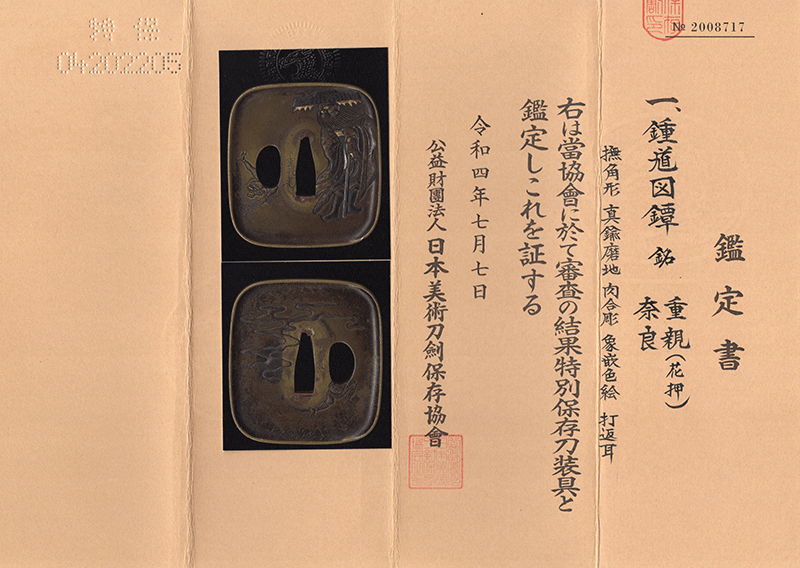 № 2008717
鑑定書
一、鍾馗図鐔 銘 奈良 重親(花押)
撫角形 真鍮磨地 肉合彫 象嵌色絵 打返耳
右は當協會に於て審査の結果特別保存刀装具と
鑑定しこれを証する
令和四年七月七日
公益財團法人 日本美術刀劍保存協會
特保
04202205